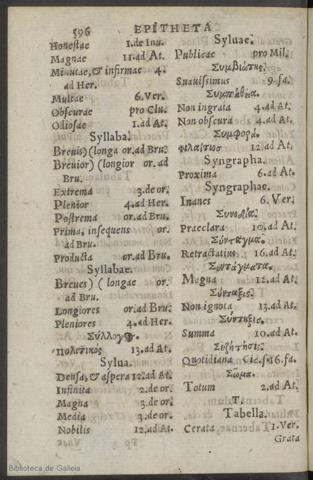 596 EPITHETA
Honestae 1.de Inu.
Magnae 11.ad At.
Minutae, & infirmae 4.
ad Her.
Multae 6.Ver.
Obscurae pro Clu.
Odiosae 1.ad At.
Syllaba.
Breuis) (longa or.ad Bru.
Breuior) (longior or.ad
Bru.
Extrema 3.de or.
Plenior 4.ad Her.
Postrema or.ad Bru.
Prima, insequens or.
ad Bru.
Producta or.ad Bru.
Syllabae.
Breues) (longae or.
ad Bru.
Longiores or.ad Bru.
Pleniores 4.ad Her.
Σύλλογος.
πολιτικὸς 13.ad At.
Sylua.
Densa, & aspera 12.ad At.
Infinita 2.de or.
Magna 3.de or.
Media 3.de or.
Nobilis 12.ad At.
Syluae.
Publicae pro Mil.
Συμβιώτης.
Suauissimus 9.fa.
Συμπάθεια.
Non ingrata 4.ad At.
Non obscura 4.ad At.
Συμφορά.
φιλαίτιος 12.ad At.
Syngrapha.
Proxima 6.ad At.
Syngraphae.
Inanes 6.Ver.
Συνοδία.
Praeclara 10.ad At.
Σύνταγμα.
Retractatius 16.ad At.
Συντάγματα.
Magna 12.ad At.
Σύνταξις.
Non ignota 13.ad At.
Σύντηξις.
Summa 10.ad At.
Συζήτησις.
Quotidiana Cic.f.16.fa.
Σῶμα.
Totum 2.ad At.
T.
Tabella.
Cerata 1.Ver.
Grata
Biblioteca de Galicia